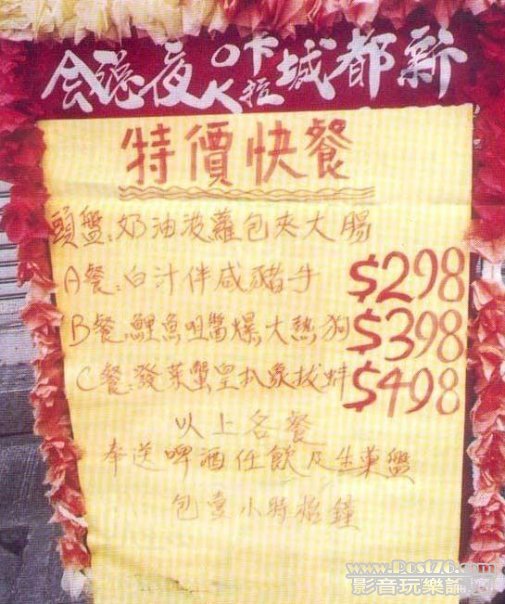 新都城卡拉OK夜總会
特價快餐
頭盤:奶油波蘿包夾大腸
A餐:白汁伴咸豬手 $298
B餐:鯉魚咀醬爆大熱狗 $398
C餐:發菜蟹皇扒象拔蚌 $498
以上各餐
奉送啤酒任飲及生菓盤
包壹小時枱鐘
www.Post76.com
影音玩樂論